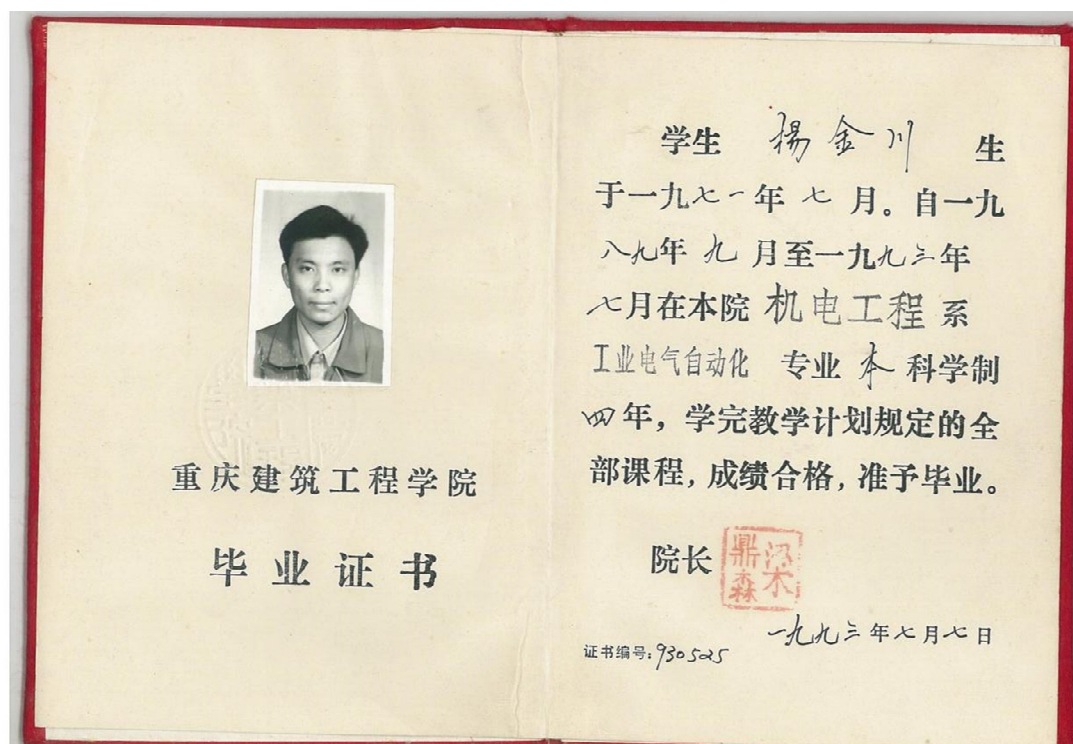 重庆建筑工程学院
毕业证书
学生 楊金川 生
于一九七一年七月。自一九
八九年九月至一九九三年
七月在本院机电工程系
工业电气自动化专业本科学制
四年，学完教学计划规定的全
部课程，成绩合格，准予毕业。
院长 梁鼎森
一九九三年七月七日
证书编号：930525